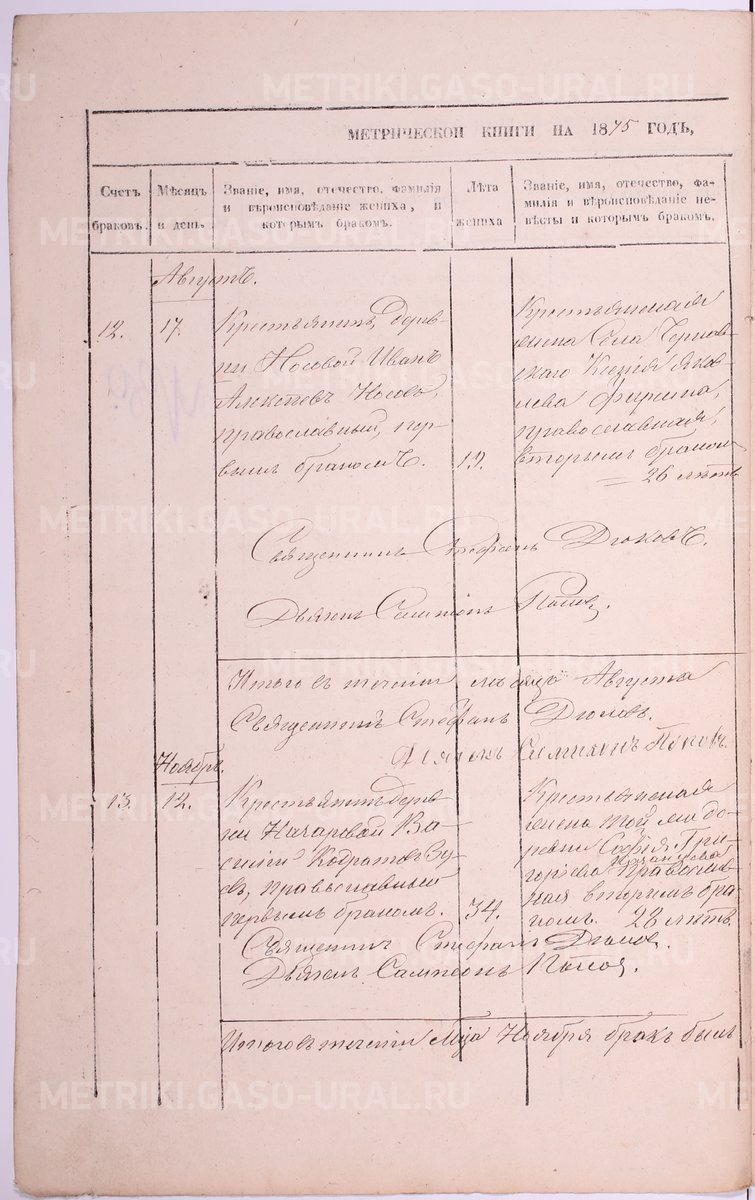 МЕТРИЧЕСКОЙ КНИГИ НА 1875 ГОДЪ,
Счетъ браковъ.
Мѣсяцъ и день.
Званіе, имя, отечество, фамилія
и вѣроисповѣданіе жениха, и
которымъ бракомъ.
Лѣта
жениха
Званіе, имя, отечество, фа-
милія и вѣроисповѣданіе не-
вѣсты и которымъ бракомъ.
Августъ.
12.
17.
Крестьянинъ дерев-
ни Носовой Иванъ
Алексѣевъ Носовъ,
православный, пер-
вымъ бракомъ.
19.
Крестьянская
жена Села
Ксенія Яков-
лева
православная,
вторымъ бракомъ
26 лѣтъ
Священникъ Стефанъ Дюковъ.
Дьяконъ Сампсонъ Поповъ
Итого въ теченіи мѣсяца Августа
Священникъ Стефанъ Дюковъ.
Дьяконъ Симпсонъ Поповъ.
Ноябрь.
13.
12.
Крестьянинъ дерев-
ни Ва-
силій Зу-
евъ, православный
первымъ бракомъ.
34.
Крестьянская
жена той же де-
ревни Софія Гри-
горьева Православ-
ная вторымъ бра-
комъ. 28 лѣтъ.
Священникъ Стефанъ Дюковъ.
Дьяконъ Сампсонъ Поповъ.
Итого въ теченіи Мца Ноября бракъ былъ
METRIKI.GASO-URAL.RU